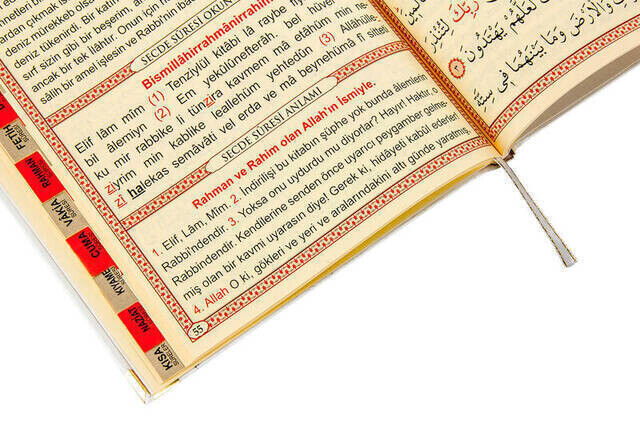 deniz mürekkep olsa
deniz tükenirdi. Bir katın
sırf sizin gibi bir beşerim, an
ancak bir tek ilâhtır. Onun için h
sâlih bir amel işlesin ve Rabbin'in ibad
SECDE SÛRESİ OKUN
Bismillâhirrahmânirrahîm
Elif lâm mîm (1) Tenzîylül kitâbi lâ raybe
bil âlemiyn (2) Em yekûlûnefterâh. bel h
ku mir rabbike li tünzira kavmem mâ etâhüm min ne
ziyrim min kablike leallehüm yehtedûn (3) Allâhülle
zî halekas semâvâti vel erda ve mâ beynehümâ fî sitteti
SECDE SÛRESİ ANLAMI
Rahman ve Rahim olan Allah'ın İsmiyle.
1. Elif, Lâm, Mîm. 2. İndirilişi bu kitabın şüphe yok bunda âlemlerin
Rabbi'ndendir. 3. Yoksa onu uydurdu mu diyorlar? Hayır! Haktır, o
Rabbindendir. Kendilerine senden önce uyarıcı peygamber gelme-
miş olan bir kavmi uyarasın diye! Gerek ki, hidâyeti kabûl ederler!
4. Allah O ki, gökleri ve yeri ve aralarındakini altı günde yaratmış,
55
FETİH
RAHMAN
VAKIA
CUMA
KIYAME
NAZİAT
KISA
SURELER
رَبِّكَ لِتُنْذِرَ
لَعَلَّهُمْ يَهْتَدُونَ
وَالْأَرْضَ وَمَا بَيْنَهُمَا فِي سِتَّةِ